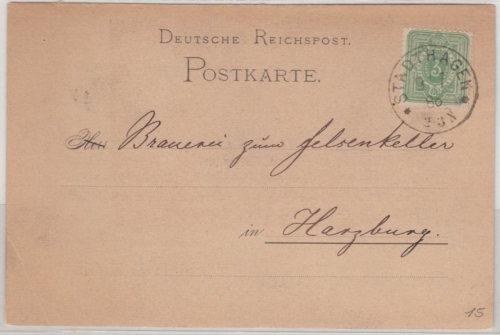 DEUTSCHE REICHSPOST.
POSTKARTE.
STADTHAGEN
86
Brauerei zum Felsenkeller
in Harzburg.
15